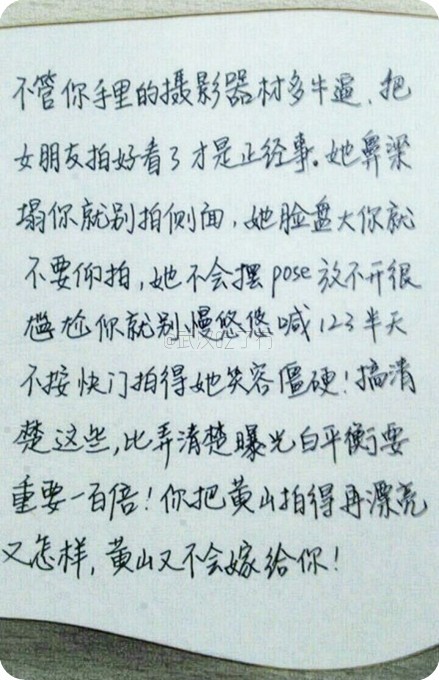 不管你手里的摄影器材多牛逼、把
女朋友拍好看了才是正经事。她鼻梁
塌你就别拍侧面，她脸盘大你就
不要仰拍，她不会摆pose放不开很
尴尬你就别慢悠悠喊123半天
不按快门拍得她笑容僵硬！搞清
楚这些，比弄清楚曝光白平衡要
重要一百倍！你把黄山拍得再漂亮
又怎样，黄山又不会嫁给你！